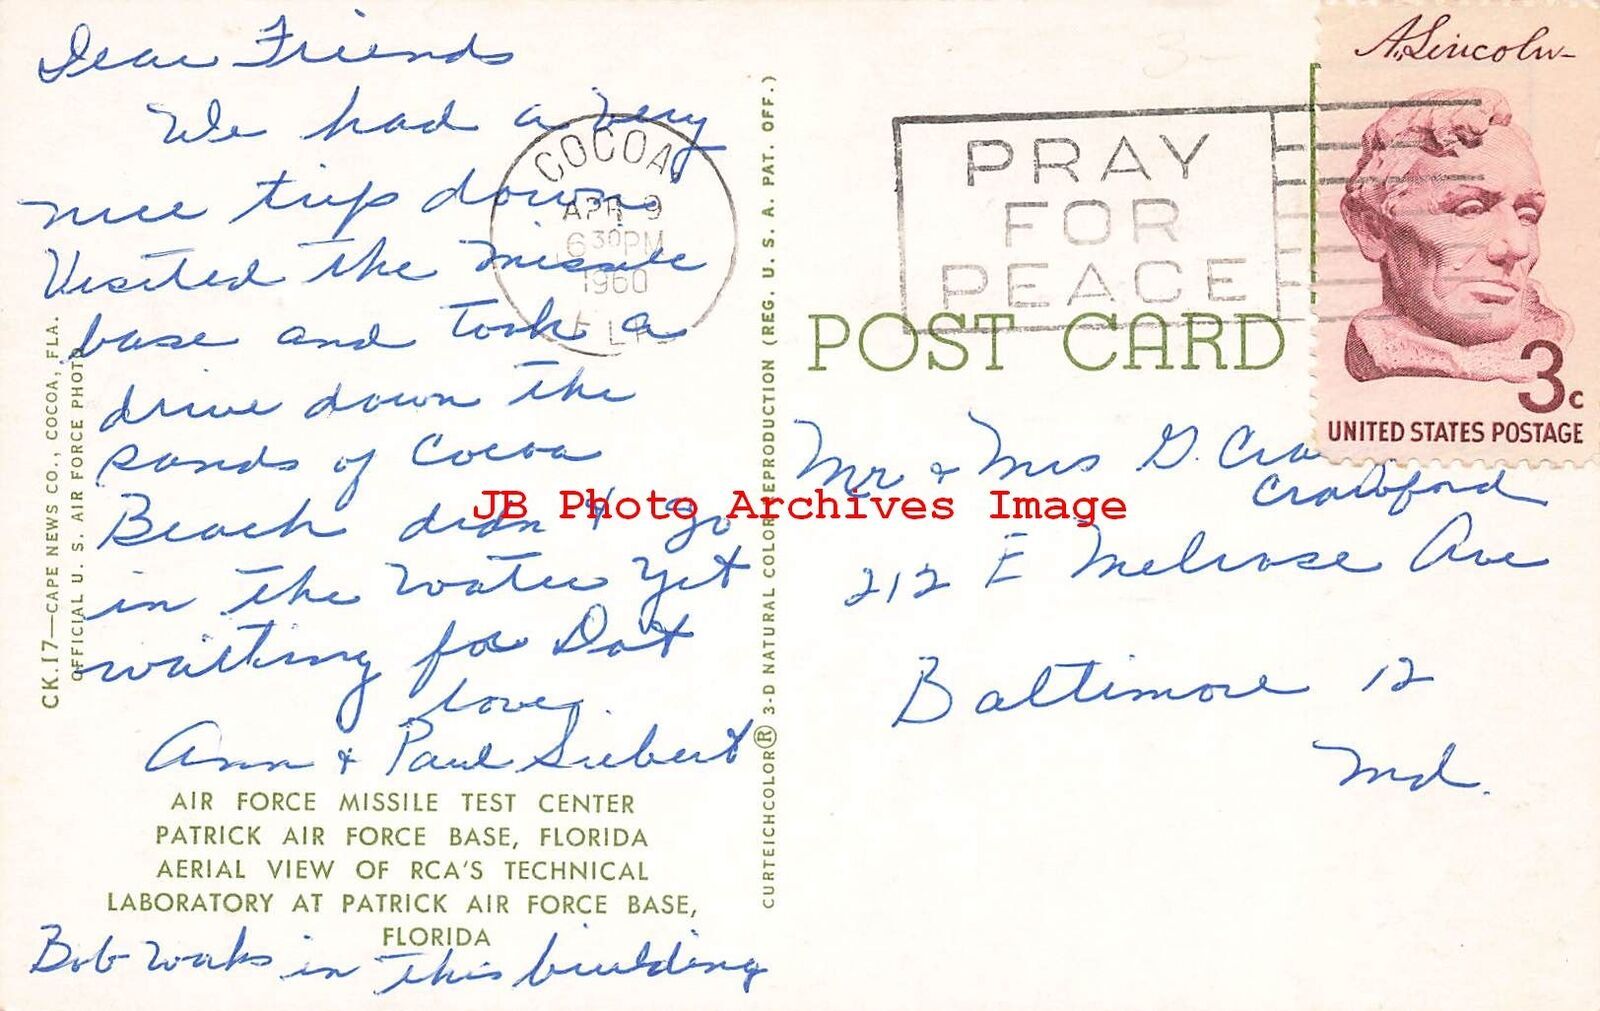 Dear Friends
We had a very
nice trip down.
Visited the missile
base and took a
drive down the
sands of Cocoa
Beach didn't go
in the water yet
waiting for Dot
Love,
Ann & Paul Siebert
AIR FORCE MISSILE TEST CENTER
PATRICK AIR FORCE BASE, FLORIDA
AERIAL VIEW OF RCA'S TECHNICAL
LABORATORY AT PATRICK AIR FORCE BASE,
FLORIDA
Bob works in this building
CK.17—CAPE NEWS CO., COCOA, FLA.
OFFICIAL U. S. AIR FORCE PHOTO
COCOA,
APR 9
6 30 PM
1960
FLA
CURTEICHCOLOR® 3-D NATURAL COLOR REPRODUCTION (REG. U. S. A. PAT. OFF.)
PRAY
FOR
PEACE
A. Lincoln
3c
UNITED STATES POSTAGE
POST CARD
Mr & Mrs G. Cra
Crawford
212 E Melrose Ave
Baltimore 12
Md.
JB Photo Archives Image